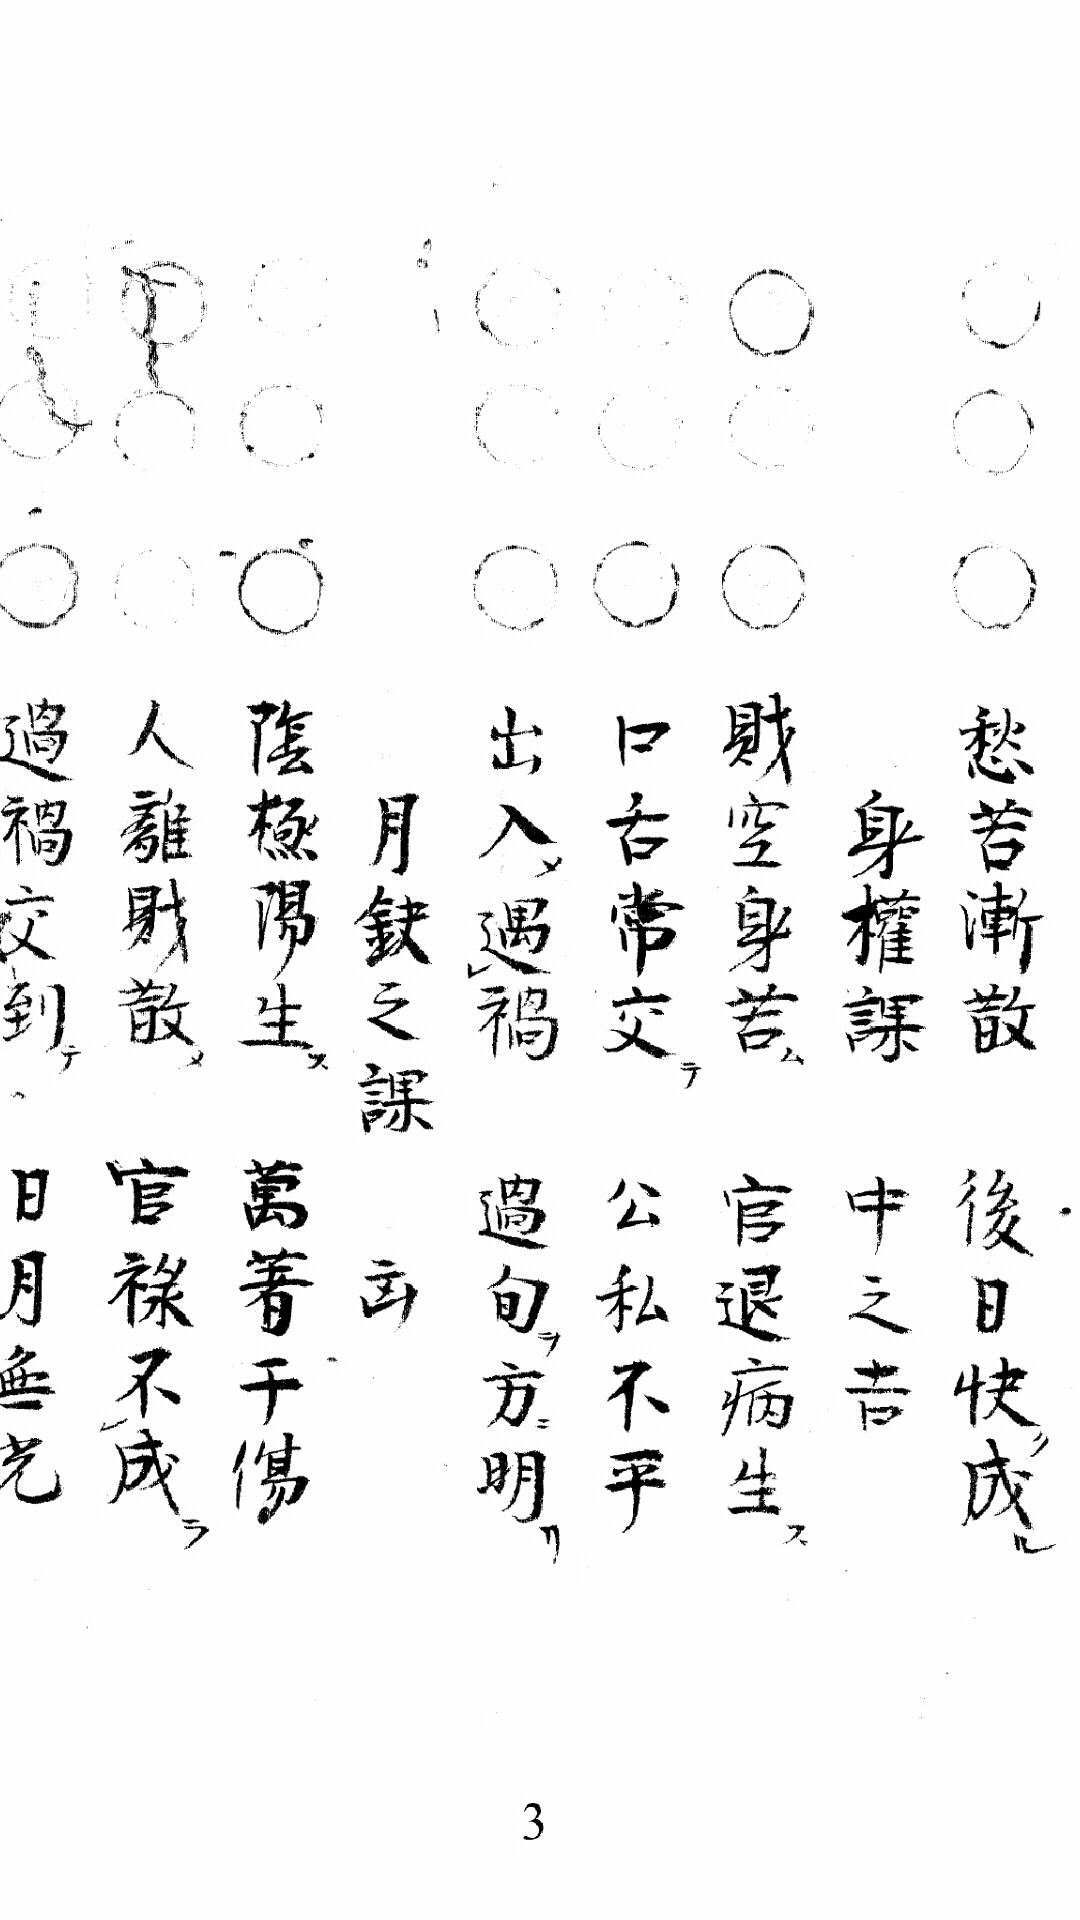 愁苦漸散 後日快リ成ル
身權課 中之吉
財空身苦ム 官退病生ス
口舌常交テ 公私不平
出入メ遇レ禍 過旬ヲ方ニ明リ
月缺之課 凶
陰極陽生ス 萬著干傷
人離財散メ 官祿不レ成ラ
過禍交到テ 日月無光
3